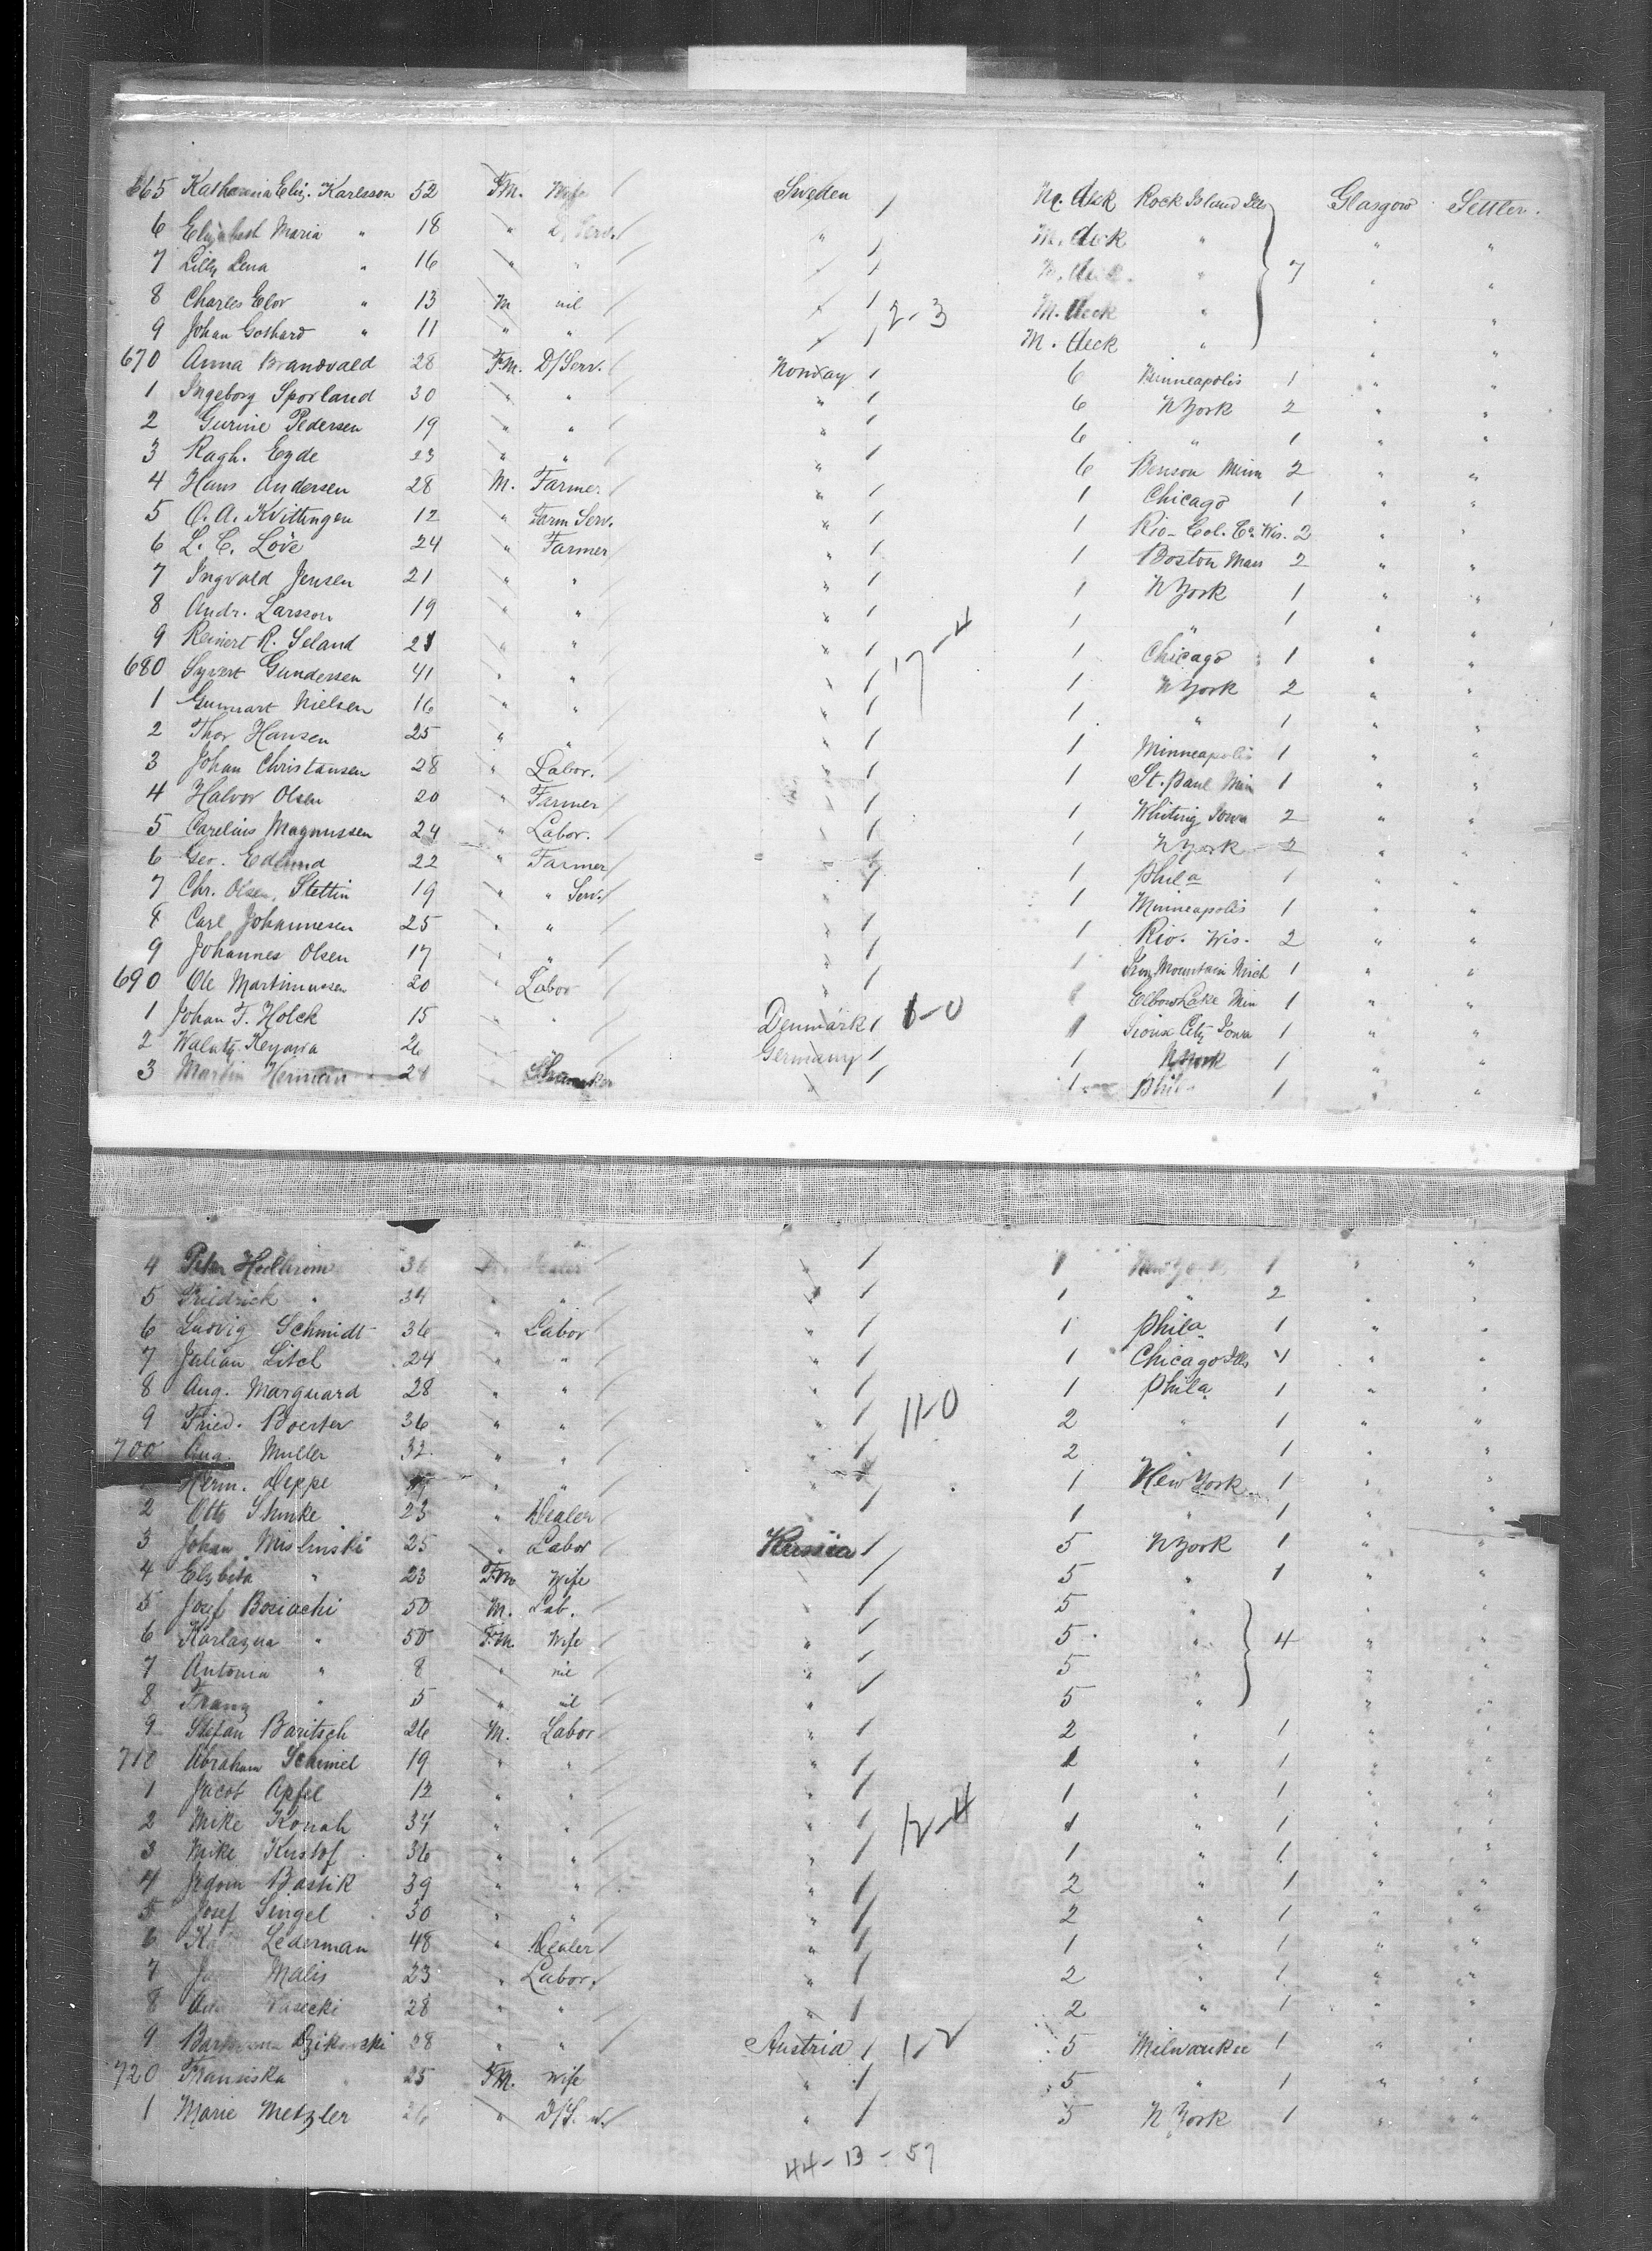 665 Katharina Eliz. Karlsson 52 F.M. Wife / Sweden / M. deck Rock Island Ills Glasgow Settler.
6 Elizabeth Maria " 18 " D/Serv. / " / M. deck " " "
7 Lilly Lena " 16 " " / " / M. deck " 7 " "
8 Charles Elov " 13 M nil / " / 2-3 M. deck " " "
9 Johan Gothard " 11 " " / " / M. deck " " "
670 Anna Brandvald 28 F.M. D/Serv. / Norway / 6 Minneapolis 1 " "
1 Ingeborg Sporland 30 " " / " / 6 N York 2 " "
2 Gurine Pedersen 19 " " / " / 6 " 1 " "
3 Ragh. Eyde 23 " " / " / 6 Benson Minn 2 " "
4 Hans Andersen 28 M. Farmer / " / 1 Chicago 1 " "
5 O. A. Kvittingen 12 " Farm Serv. " / 1 Rio-Col. Co. Wis. 2 " "
6 L. C. Löve 24 " Farmer / " / 1 Boston Mass 2 " "
7 Ingvald Jensen 21 " " / " / 1 N York 1 " "
8 Andr. Larsson 19 " " / " / 1 " 1 " "
9 Reinert R. Seland 21 " " / " / 17-4 1 Chicago 1 " "
680 Syvert Gundersen 41 " " / " / 1 N York 2 " "
1 Gunnart Nielsen 16 " " / " / 1 " 1 " "
2 Thor Hansen 25 " " / " / 1 Minneapolis 1 " "
3 Johan Christansen 28 " Labor. / " / 1 St. Paul Min 1 " "
4 Halvor Olsen 20 " Farmer / " / 1 Whiting Iowa 2 " "
5 Carelius Magnussen 24 " Labor. / " / 1 N York 2 " "
6 Geo. Edlund 22 " Farmer / " 1 Phila 1 " "
7 Chr. Olsen, Stettin 19 " " Serv. / " / 1 Minneapolis 1 " "
8 Carl Johannesen 25 " " / " / 1 Rio. Wis. 2 " "
9 Johannes Olsen 17 " " / " / 1 Mountain Mich 1 " "
690 Ole Martinussen 20 " Labor / " / Elbow Lake Min 1 " "
1 Johan F. Holck 15 " " / Denmark / 1-0 1 Sioux City Iowa 1 " "
2 Keyawa 26 " Germany / 1 N York 1 " "
3 Martin Hermann 28 " " / 1 Phila 1 " "
4 Peter 36 / " / 1 New York 1 " "
5 Friedrick " 34 " " / " / 1 " 2 " "
6 Ludvig Schmidt 36 " Labor / " / 1 Phila 1 " "
7 Julian Litch 24 " " / " / 1 Chicago Ills 1 " "
8 Aug. Marquard 28 " " / " / 1 Phila 1 " "
9 Fried. Boerter 36 " " / " / 11-0 2 " 1 " "
700 Aug. Muller 32 " " / " / 2 1 " "
Herm. Deppe " " / " 1 New York 1 " "
2 Otto Stunke 23 " Dealer / / 1 " 1 " "
3 Johan Mislinski 25 " Labor / Russia / 5 N York 1 " "
4 Elzbita " 23 F.M. Wife / 5 " 1 " "
5 Josef Bosiacki 50 M. Lab. / " / 5 " " "
6 Karlazya " 50 F.M. Wife / " / 5 " 4 " "
7 Antonia " 8 " nil / " / 5 " " "
8 Franz " 5 " nil / " / 5 " " "
9 Stefan Baritsch 26 M. Labor / " / 2 " 1 " "
710 Abraham Schimel 19 " " / " / 1 " 1 " "
1 Jacob Apfel 12 " " / " / 1 " 1 " "
2 Mike Konah 34 " " / " / 12-4 1 " 1 " "
3 Mike Kustof 36 " " / " / 1 " 1 " "
4 Bastik 39 " " / " / 2 " 1 " "
5 Josef Singel 30 " " / " / 2 " 1 " "
6 Lederman 48 " Dealer / " / 1 " 1 " "
7 Malis 23 " Labor. / " / 2 " 1 " "
8 28 " " / " / 2 " 1 " "
9 Dzikowski 28 " " / Austria / 1-2 5 Milwaukee 1 " "
720 Fransiska " 25 F.M. Wife / " / 5 " 1 " "
1 Marie Metzler 26 " / " / 5 N York 1 " "
44-13-57